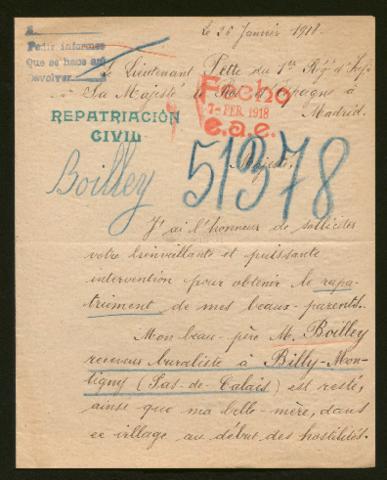 Le 25 Janvier 1918.
Pedir informes
Que se hace así
Devolver
Le Lieutenant Tette du 1er Rég' d'Inf.
à Sa Majesté le Roi d'Espagne à
Madrid.
Fecha
7-FEB. 1918
c.a.e.
REPATRIACIÓN
CIVIL
Boilley 51378
Majesté,
J'ai l'honneur de solliciter
votre bienveillante et puissante
intervention pour obtenir le rapa-
triement de mes beaux-parents.
Mon beau-père M. Boilley
receveur buraliste à Billy-Mon-
tigny (Pas-de-Calais) est resté,
ainsi que ma belle-mère, dans
ce village au début des hostilités.